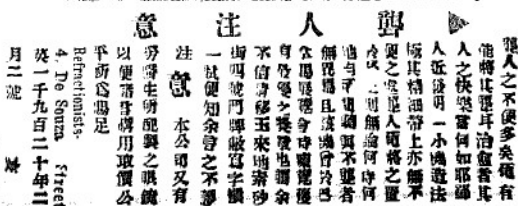 聾人注意
聾人之不便多矣有
能將其聾耳治愈者其
人之快樂當何如耶
人近發明一小機造法
極其精細上亦無不
便之處聾人將之置
於上則無論何時何
地均可聞聲與不聾者
無異焉且該機曾於巴
拿馬展覽會時獲
有最優之獎也余
不信請移玉來地索沙
街四號門牌敝寫字樓
一試便知余言之不謬
注意 本公司又有
醫生所配製之眼鏡
以便諸君購用取價公
平
Refractionists.
4. De Souza Street
英一千九百二十年二
月二號